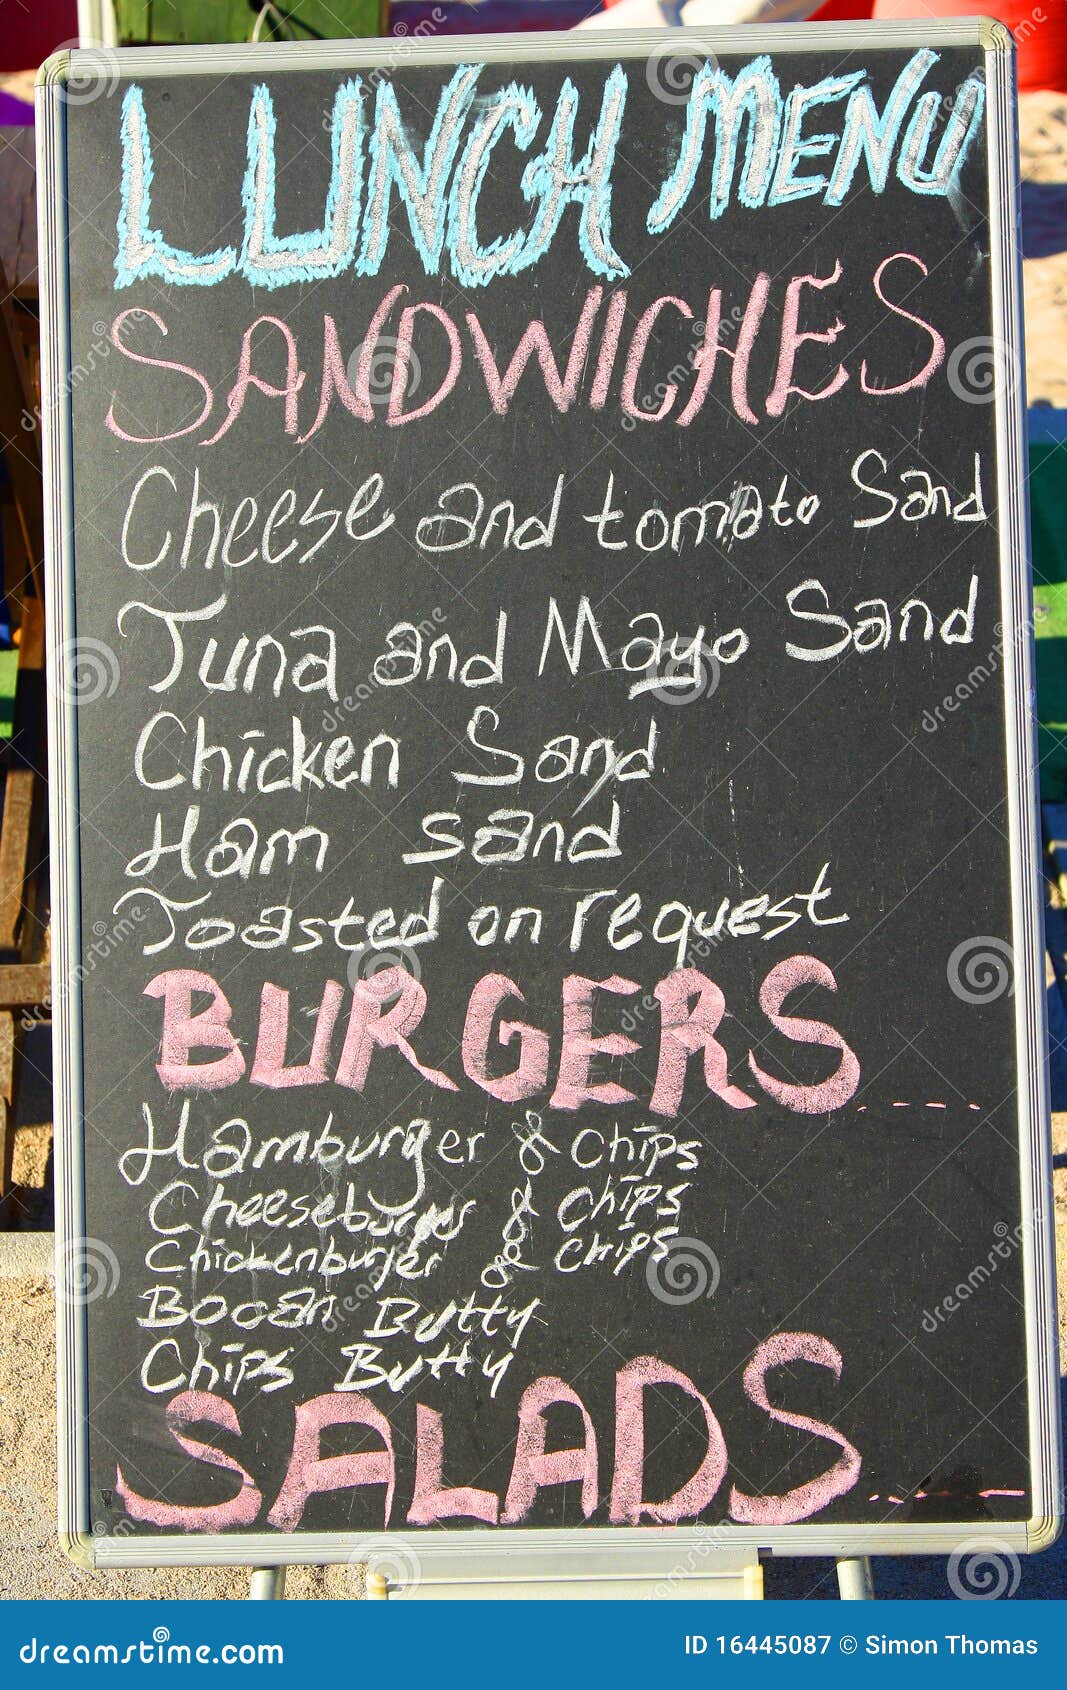 LUNCH MENU
SANDWICHES
Cheese and tomato Sand
Tuna and Mayo Sand
Chicken Sand
Ham sand
Toasted on request
BURGERS
Hamburger & Chips
Cheeseburger & Chips
Chickenburger & Chips
Bocan Butty
Chips Butty
SALADS
dreamstime.com
ID 16445087 © Simon Thomas